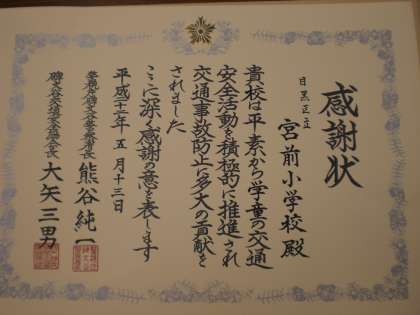 感謝状
目黒区立
宮前小学校殿
貴校は平素から学童の交通
安全活動を積極的に推進され
交通事故防止に多大の貢献を
されました
ここに深く感謝の意を表します
平成二十一年五月十三日
警視庁碑文谷警察署長 熊谷純一
碑文谷交通安全協会長 大矢三男